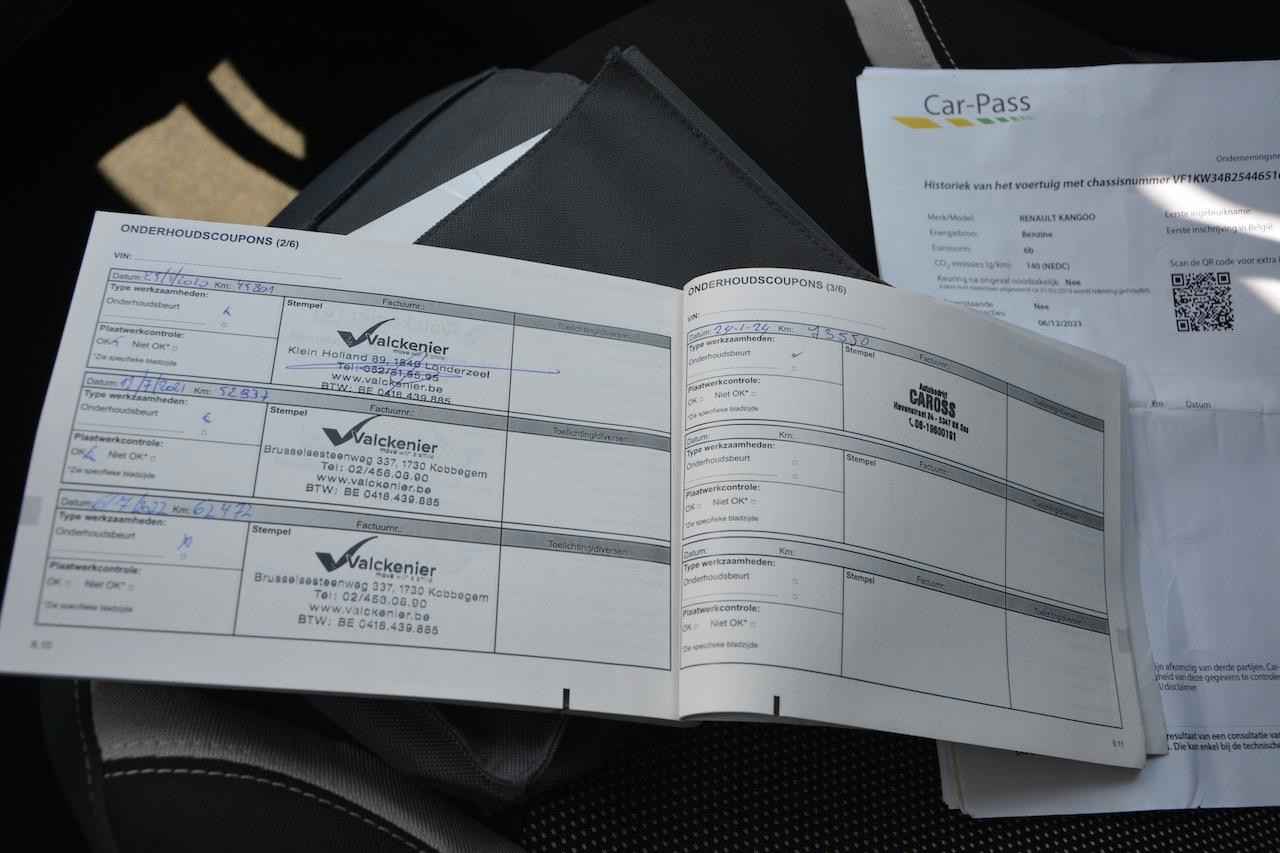 ONDERHOUDSCOUPONS (2/6)
VIN:
Datum: Km:
Type werkzaamheden:
Onderhoudsbeurt
Plaatwerkcontrole:
OK Niet OK*
*Zie specifieke bladzijde
Stempel Factuurnr.: Toelichting/diversen
Valckenier
move with a smile
Klein Holland 89, 1840 Londerzeel
Tel: 052/31.55.95
www.valckenier.be
BTW: BE 0418.439.885
Datum: /7/2021 Km: 52837
Type werkzaamheden:
Onderhoudsbeurt
Plaatwerkcontrole:
OK Niet OK*
*Zie specifieke bladzijde
Stempel Factuurnr.: Toelichting/diversen
Valckenier
Brusselsesteenweg 337, 1730 Kobbegem
Tel: 02/456.08.90
www.valckenier.be
BTW: BE 0418.439.885
Datum: /7/2022 Km: 62472
Type werkzaamheden:
Onderhoudsbeurt
Plaatwerkcontrole:
OK Niet OK*
*Zie specifieke bladzijde
Stempel Factuurnr.: Toelichting/diversen
Valckenier
move with a smile
Brusselsesteenweg 337, 1730 Kobbegem
Tel: 02/456.08.90
www.valckenier.be
BTW: BE 0418.439.885
ONDERHOUDSCOUPONS (3/6)
VIN:
Datum: 24-1-24 Km: 93550
Type werkzaamheden:
Onderhoudsbeurt
Plaatwerkcontrole:
OK Niet OK*
*Zie specifieke bladzijde
Stempel Factuurnr.:
Autobedrijf
CAROSS
Datum: Km:
Type werkzaamheden:
Onderhoudsbeurt
Plaatwerkcontrole:
OK Niet OK*
*Zie specifieke bladzijde
Stempel Factuurnr.:
Datum: Km:
Type werkzaamheden:
Onderhoudsbeurt
Plaatwerkcontrole:
OK Niet OK*
*Zie specifieke bladzijde
Stempel Factuurnr.:
Car-Pass
Historiek van het voertuig met chassisnummer VF1KW34B2544651
Merk/Model: RENAULT KANGOO
Energiebron: Benzine
Euronorm: 6b
CO2 emissies (g/km): 140 (NEDC)
Keuring na ongeval noodzakelijk: Nee
Nee
06/12/2023
Eerste ingebruikname:
Eerste inschrijving in België
Scan de QR code voor extra
Km Datum
ijn afkomstig van derde partijen. Car-
gheid van deze gegevens te controle
resultaat van een consultatie van
. Die kan enkel bij de technische